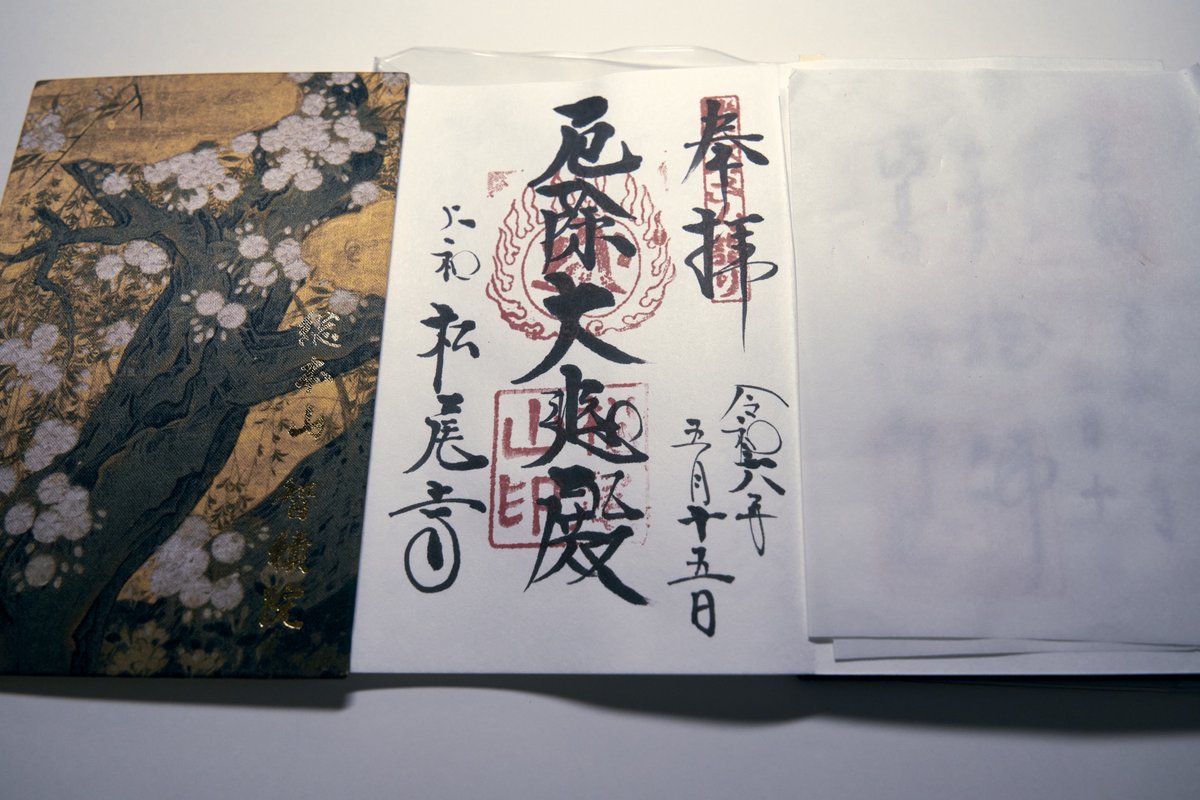 奉拝
令和六年
五月十五日
厄除大悲殿
大和
松尾寺
山印
総本山
智積院